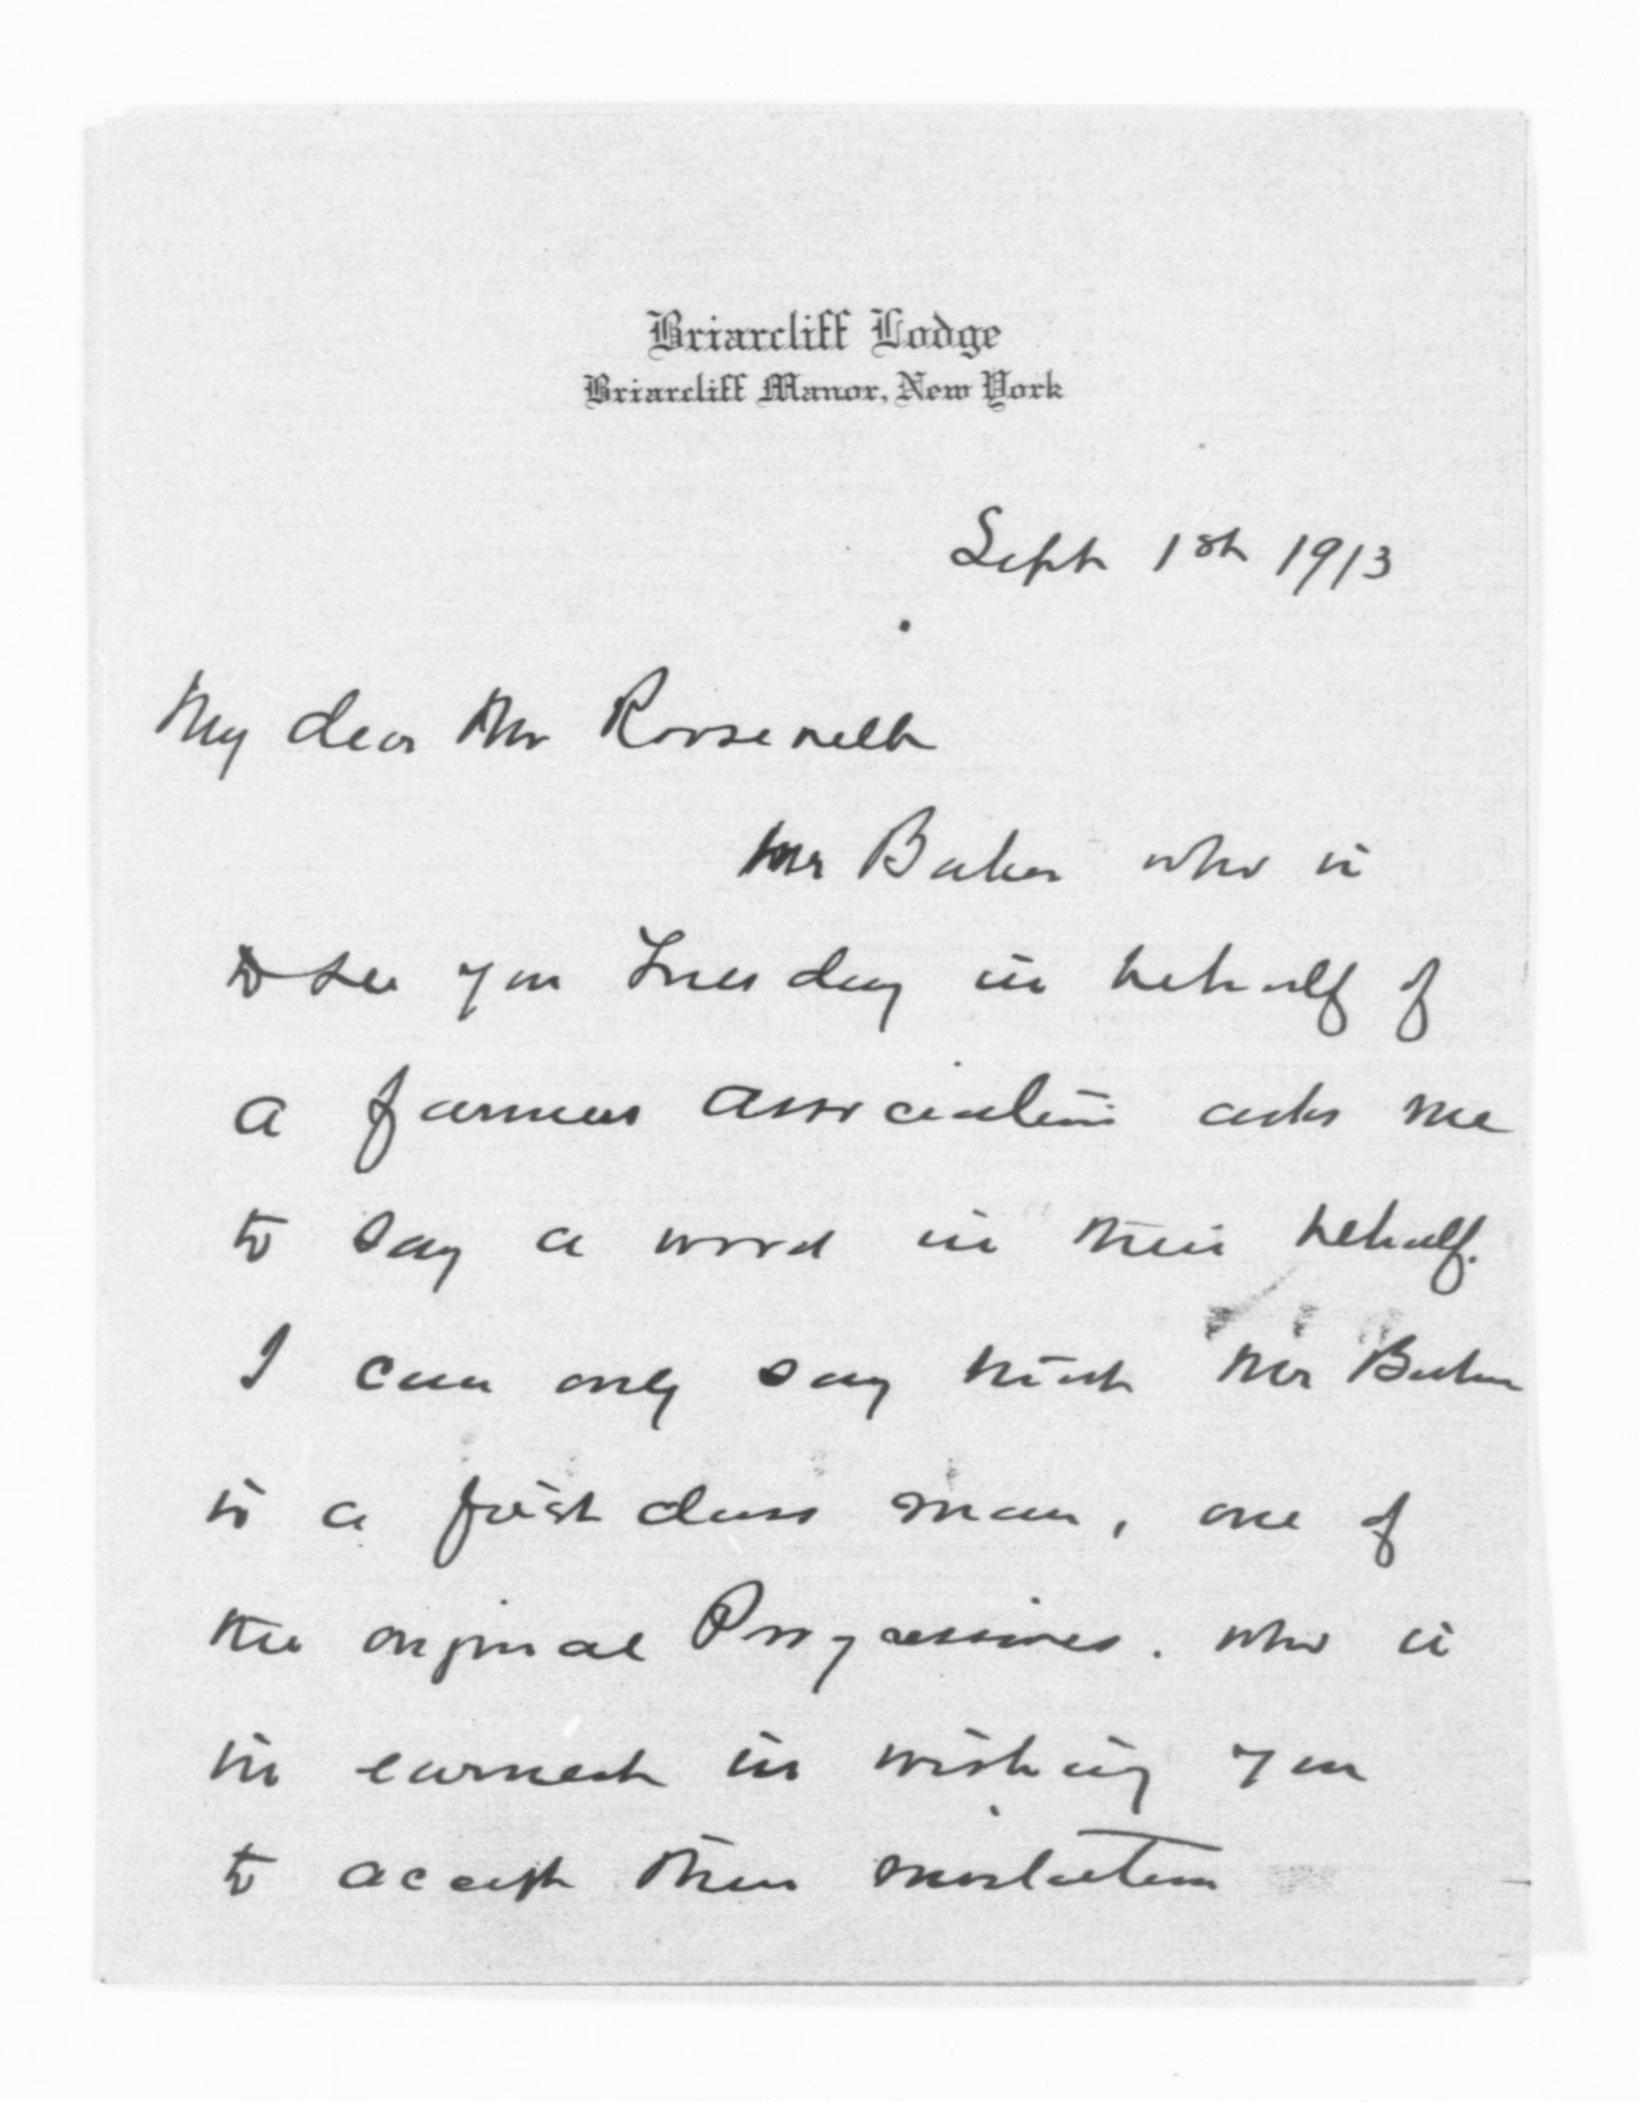 Briarcliff Lodge
Briarcliff Manor, New York
Sept 1st 1913
My dear Mr Roosevelt
Mr Baker who is
to see you Tuesday in behalf of
a farmers association asks me
to say a word in their behalf.
I can only say that Mr Baker
is a first class man, one of
the original Progressives. who is
in earnest in wishing you
to accept their invitation